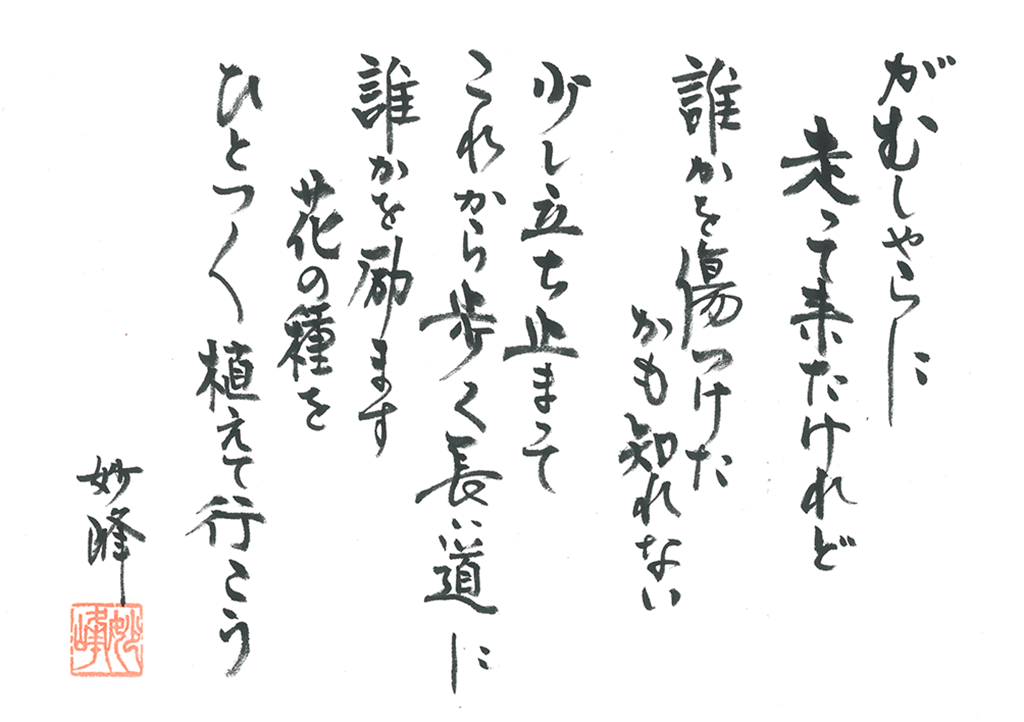 がむしゃらに
走って来たけれど
誰かを傷つけた
かも知れない
少し立ち止まって
これから歩く長い道に
誰かを励ます
花の種を
ひとつ〱植えて行こう
妙峰
妙峰